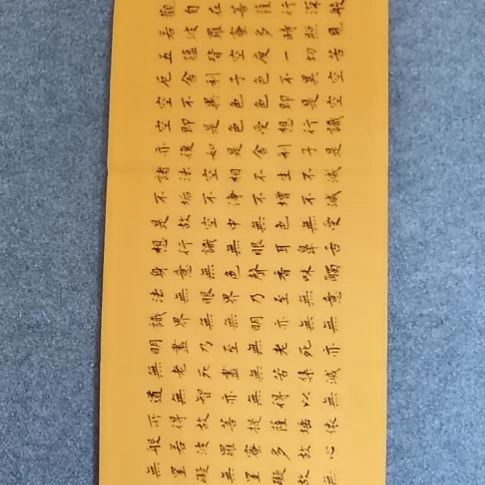 觀自在菩薩行深般
若波羅蜜多時照見
五蘊皆空度一切苦
厄舍利子色不異空
空不異色色即是空
空即是色受想行識
亦復如是舍利子是
諸法空相不生不滅
不垢不淨不增不減
是故空中無色無受
想行識無眼耳鼻舌
身意無色聲香味觸
法無眼界乃至無意
識界無無明亦無無
明盡乃至無老死亦
無老死盡無苦集滅
道無智亦無得以無
所得故菩提薩埵依
般若波羅蜜多故心
無罣礙無罣礙故無